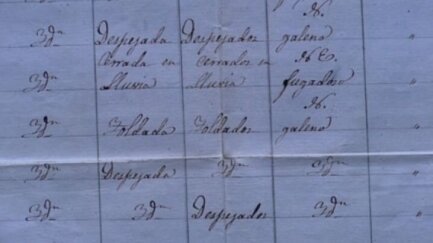 N.
Ydn Despejada Despejados galeno
Cerrada en cerrados en N.E.
Ydn lluvia lluvia fugadoso
N.
Ydn Toldada Toldados galeno "
Ydn Despejada Ydn Ydn "
Ydn Ydn Despejados Ydn "